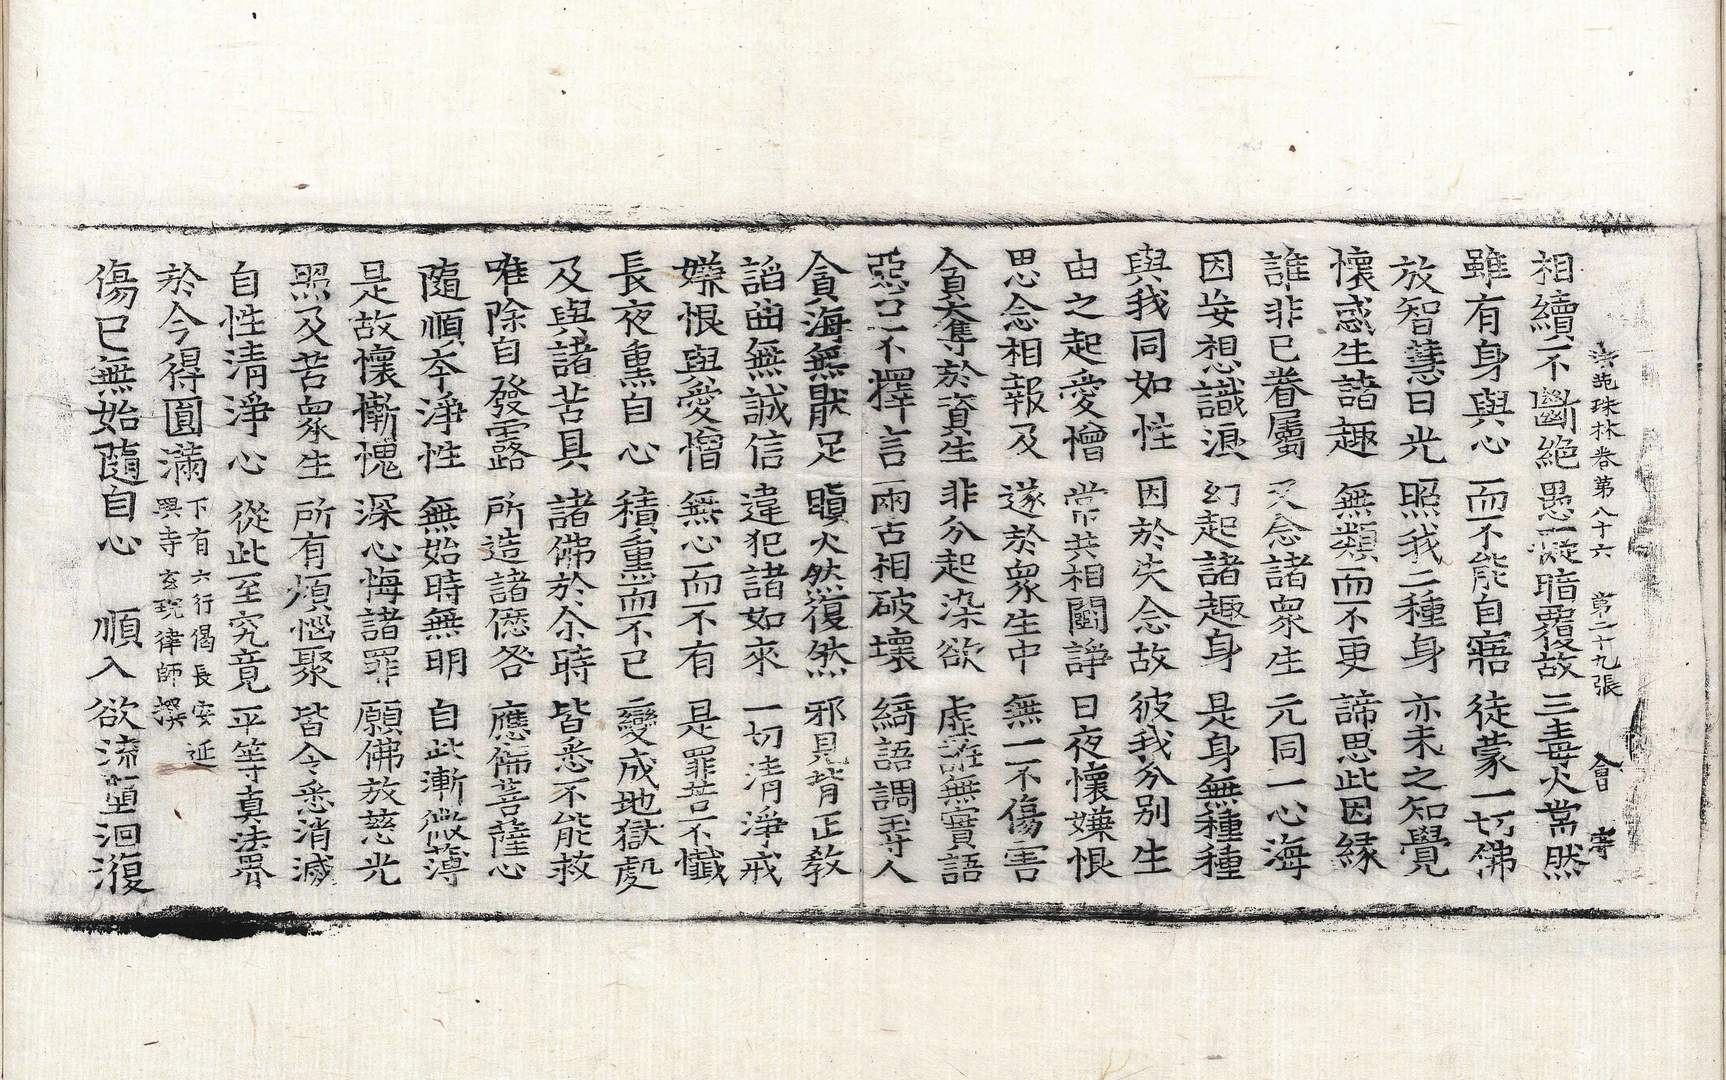 法苑珠林卷第八十六　第二十九張　會　宰
相續不斷絕　愚癡暗覆故　三毒火常然
雖有身與心　而不能自寤　徒蒙一切佛
放智慧日光　照我二種身　亦未之知覺
懷惑生諸趣　無類而不更　諦思此因緣
誰非己眷屬　又念諸衆生　元同一心海
因妄想識浪　幻起諸趣身　是身無種種
與我同如性　因於失念故　彼我分別生
由之起愛憎　常共相鬪諍　日夜懷嫌恨
思念相報及　遂於衆生中　無一不傷害
貪奪於資生　非分起染欲　虛誑無實語
惡口不擇言　兩舌相破壞　綺語調弄人
貪海無猒足　瞋火然復然　邪見背正教
諂曲無誠信　違犯諸如來　一切清淨戒
嫌恨與愛憎　無心而不有　是罪若不懺
長夜熏自心　積熏而不已　變成地獄處
及與諸苦具　諸佛於尒時　皆悉不能救
唯除自發露　所造諸僁咎　應備菩薩心
隨順本淨性　無始時無明　自此漸微薄
是故懷慚愧　深心悔諸罪　願佛放慈光
照及苦衆生　所有煩惱聚　皆令悉消滅
自性清淨心　從此至究竟　平等真法界
於今得圓滿　下有六行偈長安延
興寺玄琬律師撰
傷已無始隨自心　順入欲流墮洄澓